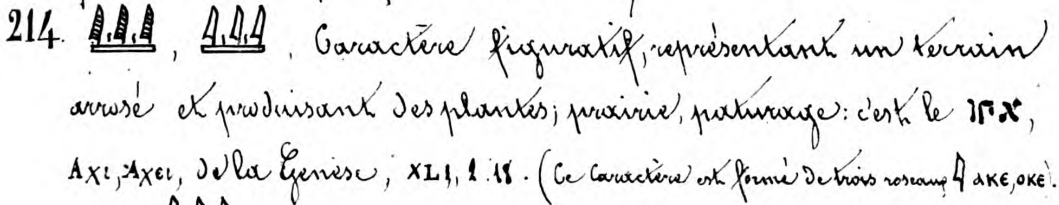 214. 𓇏, 𓇏. Caractère figuratif, représentant un terrain
arrosé et produisant des plantes; prairie, paturage: c'est le אחו,
Αχι, Αχει, de la Genèse, XLI, 2.18. (Ce caractère est formé de trois roseaux 𓇋 ⲁⲕⲉ, ⲟⲕⲉ).